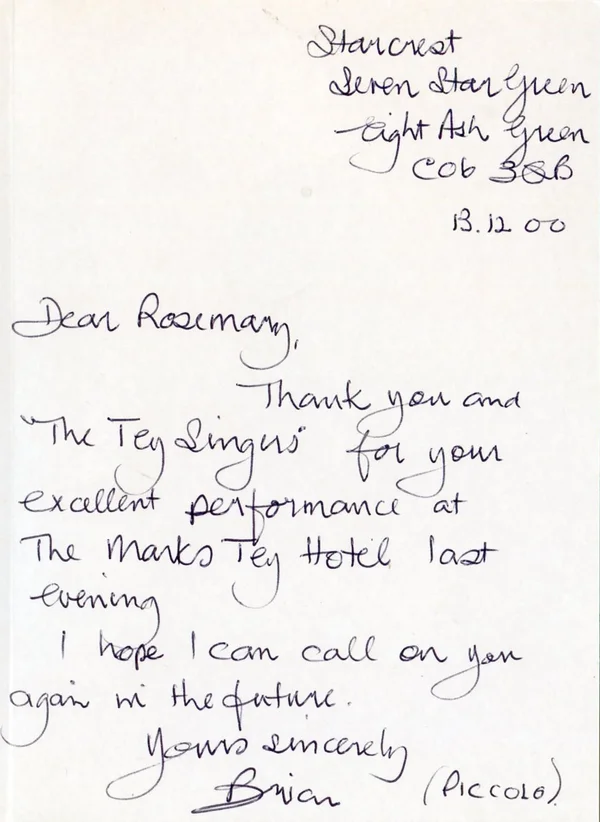 Starcrest
Seven Star Green
Eight Ash Green
CO6 3QB
13.12 00
Dear Rosemary,
Thank you and
"The Tey Singers" for your
excellent performance at
The Marks Tey Hotel last
evening
I hope I can call on you
again in the future.
Yours sincerely
Brian (PICCOLO)